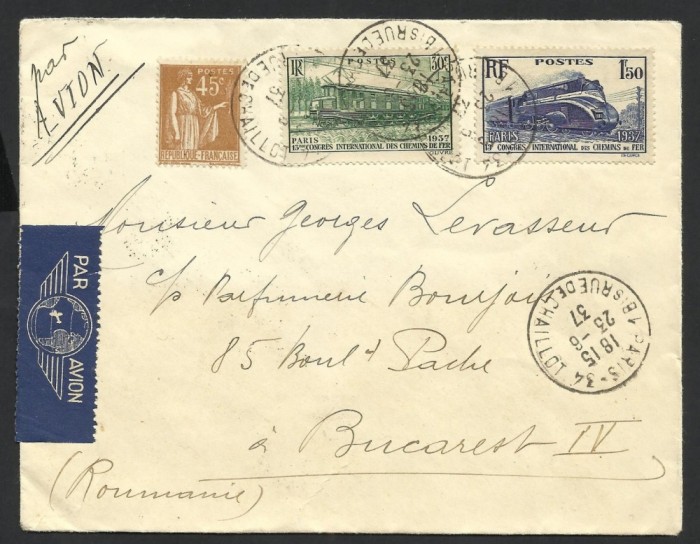 par
AVION
POSTES
45c
REPUBLIQUE-FRANCAISE
RF
POSTES
30c
PARIS 1937
13ème CONGRÈS INTERNATIONAL DES CHEMINS DE FER
RF
POSTES
1F50
PARIS 1937
13e CONGRÈS INTERNATIONAL DES CHEMINS DE FER
PAR AVION
Monsieur Georges Levasseur
c/o Parfumerie Bourjois
85 Boul d Pache
à Bucarest IV
(Roumanie)
PARIS-34
18 15
23-6
37
1 BIS RUE DE CHAILLOT